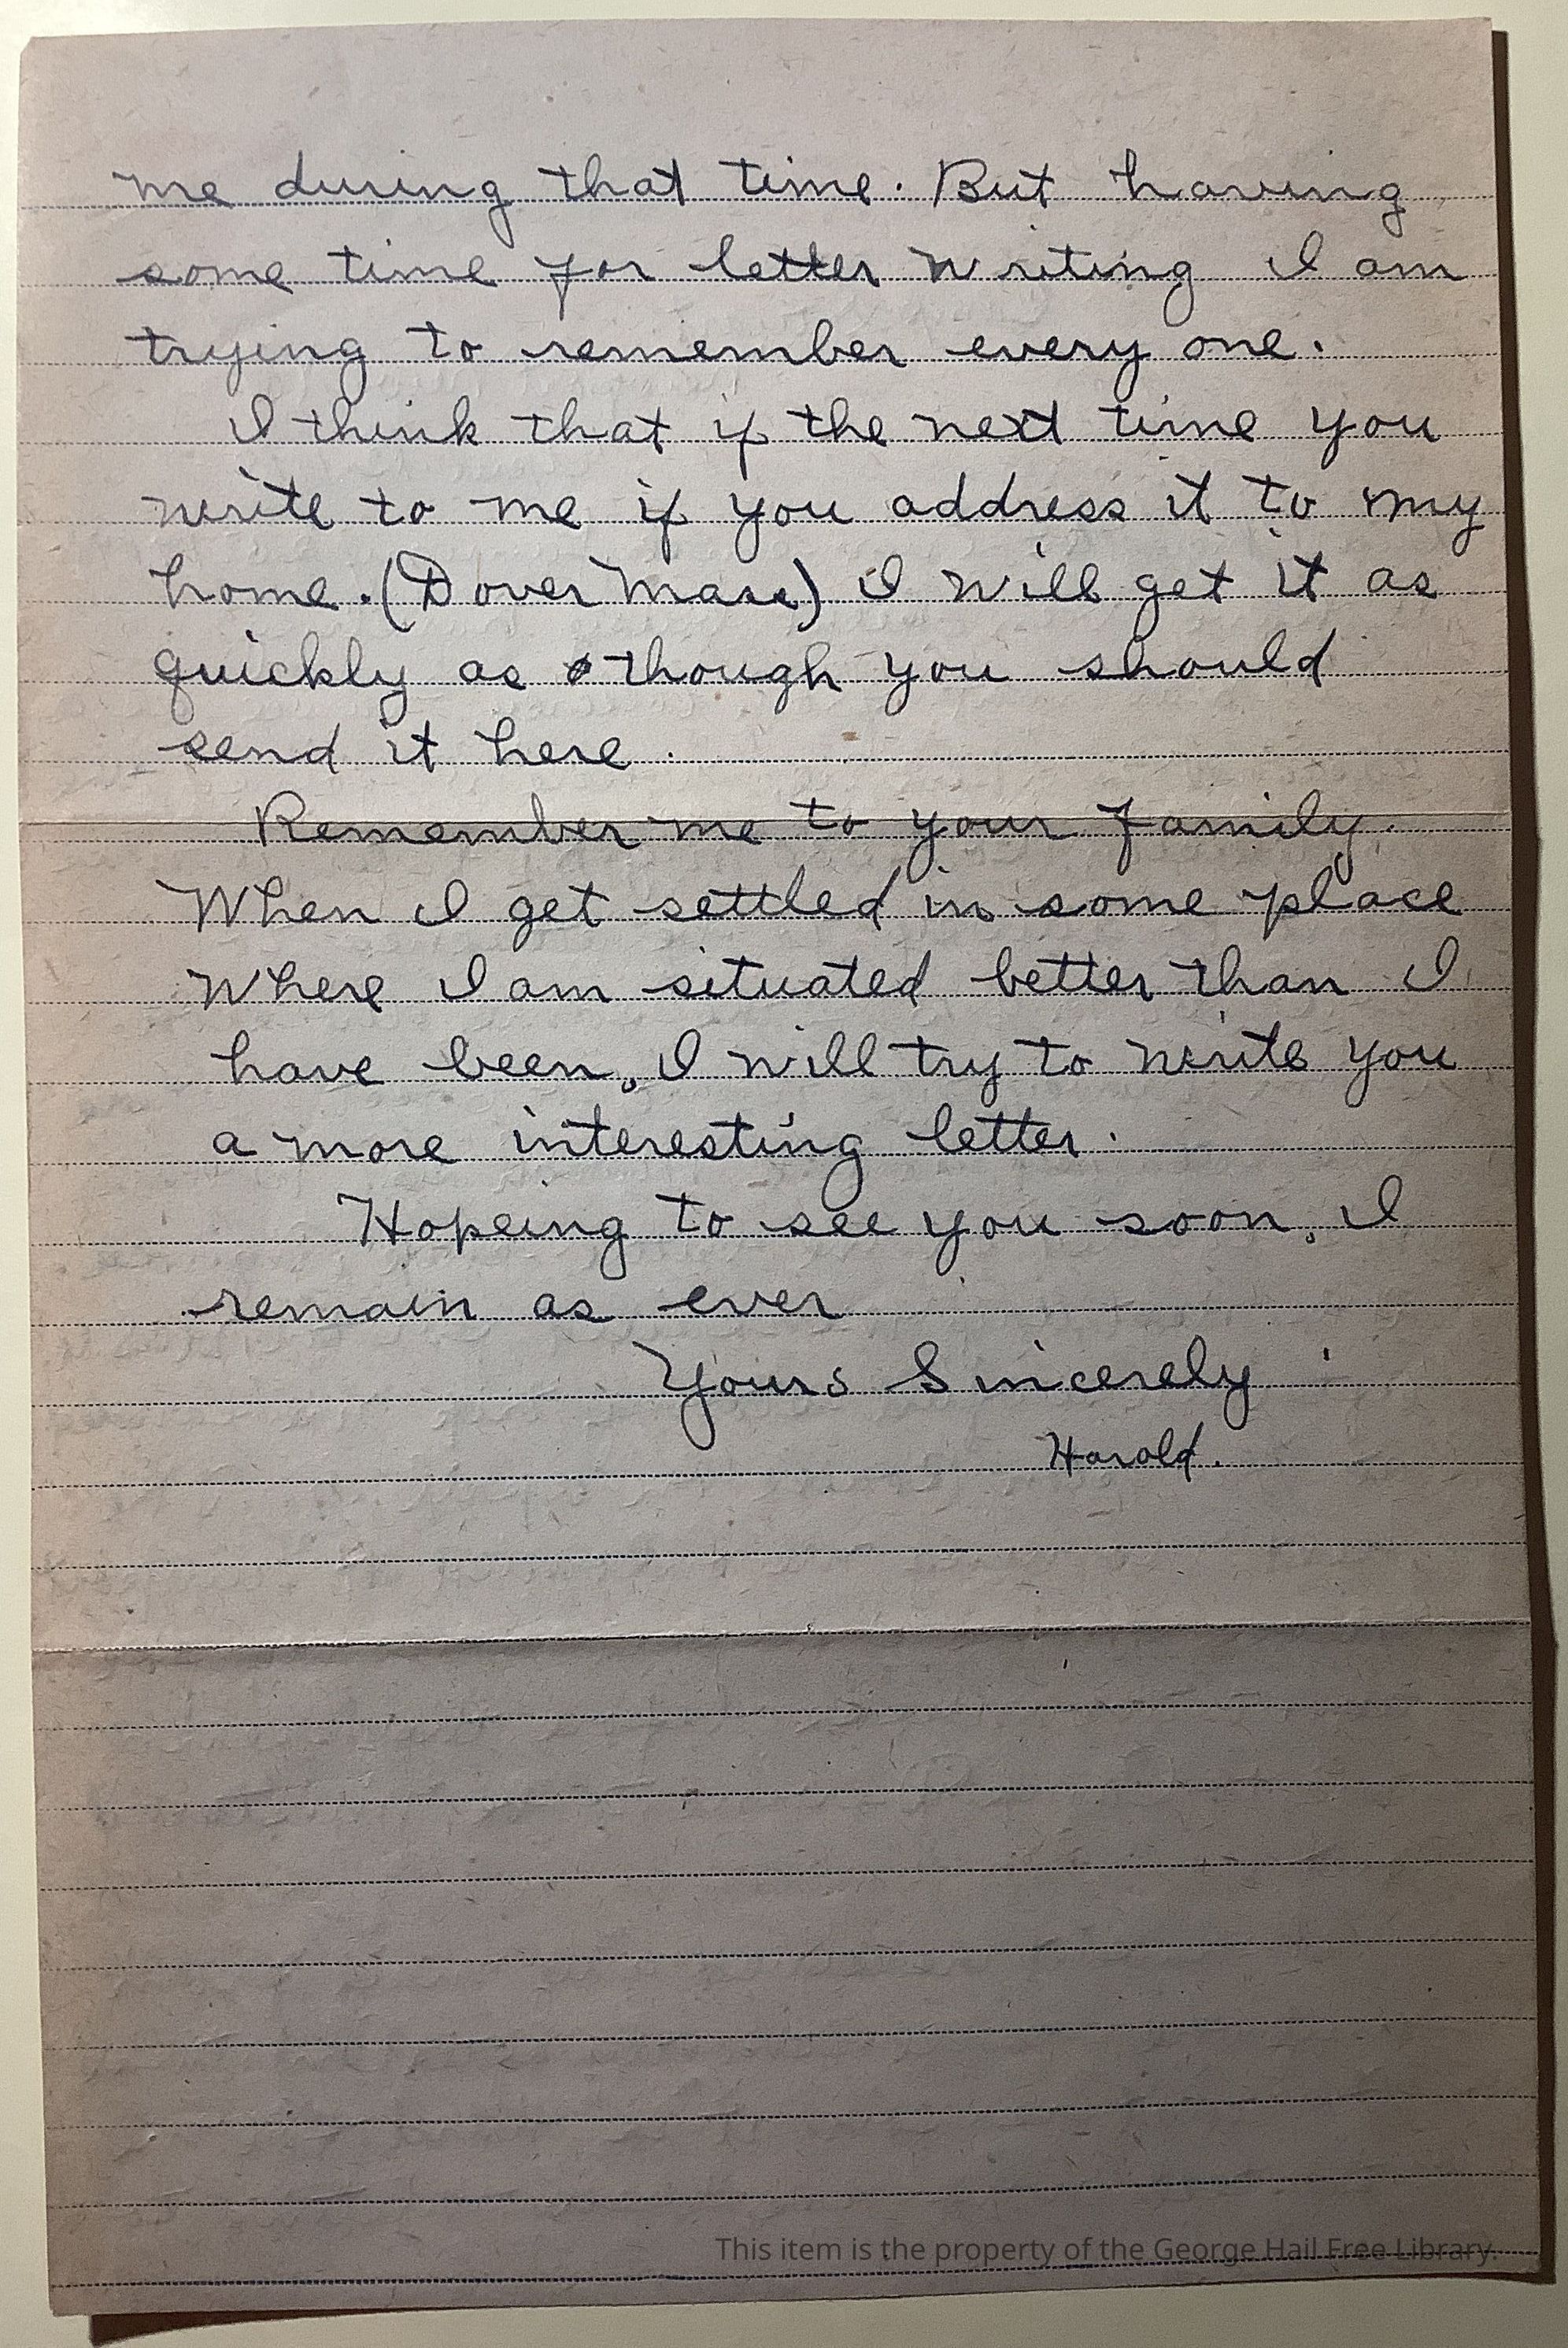 me during that time. But having
some time for letter writing I am
trying to remember every one.
I think that if the next time you
write to me if you address it to my
home. (Dover Mass) I will get it as
quickly as though you should
send it here.
Remember me to your family.
When I get settled in some place
where I am situated better than I
have been, I will try to write you
a more interesting letter.
Hopeing to see you soon, I
remain as ever
Yours Sincerely
Harold.
This item is the property of the George Hail Free Library.